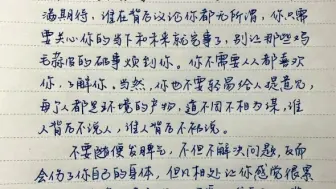 满期待，谁在背后议论你都无所谓，你只需
要关心你的当下和未来就万事了，别让那些鸡
毛蒜皮的破事烦到你。你不需要人人都喜欢
你，了解你，当然，你也不要轻易给人提意见，
每个人都是环境的产物，道不同不相为谋，谁
人背后不说人，谁人背后不被说。
不要随便发脾气，不但不解决问题，反而
会伤了你自己的身体，但凡相处让你感觉很累